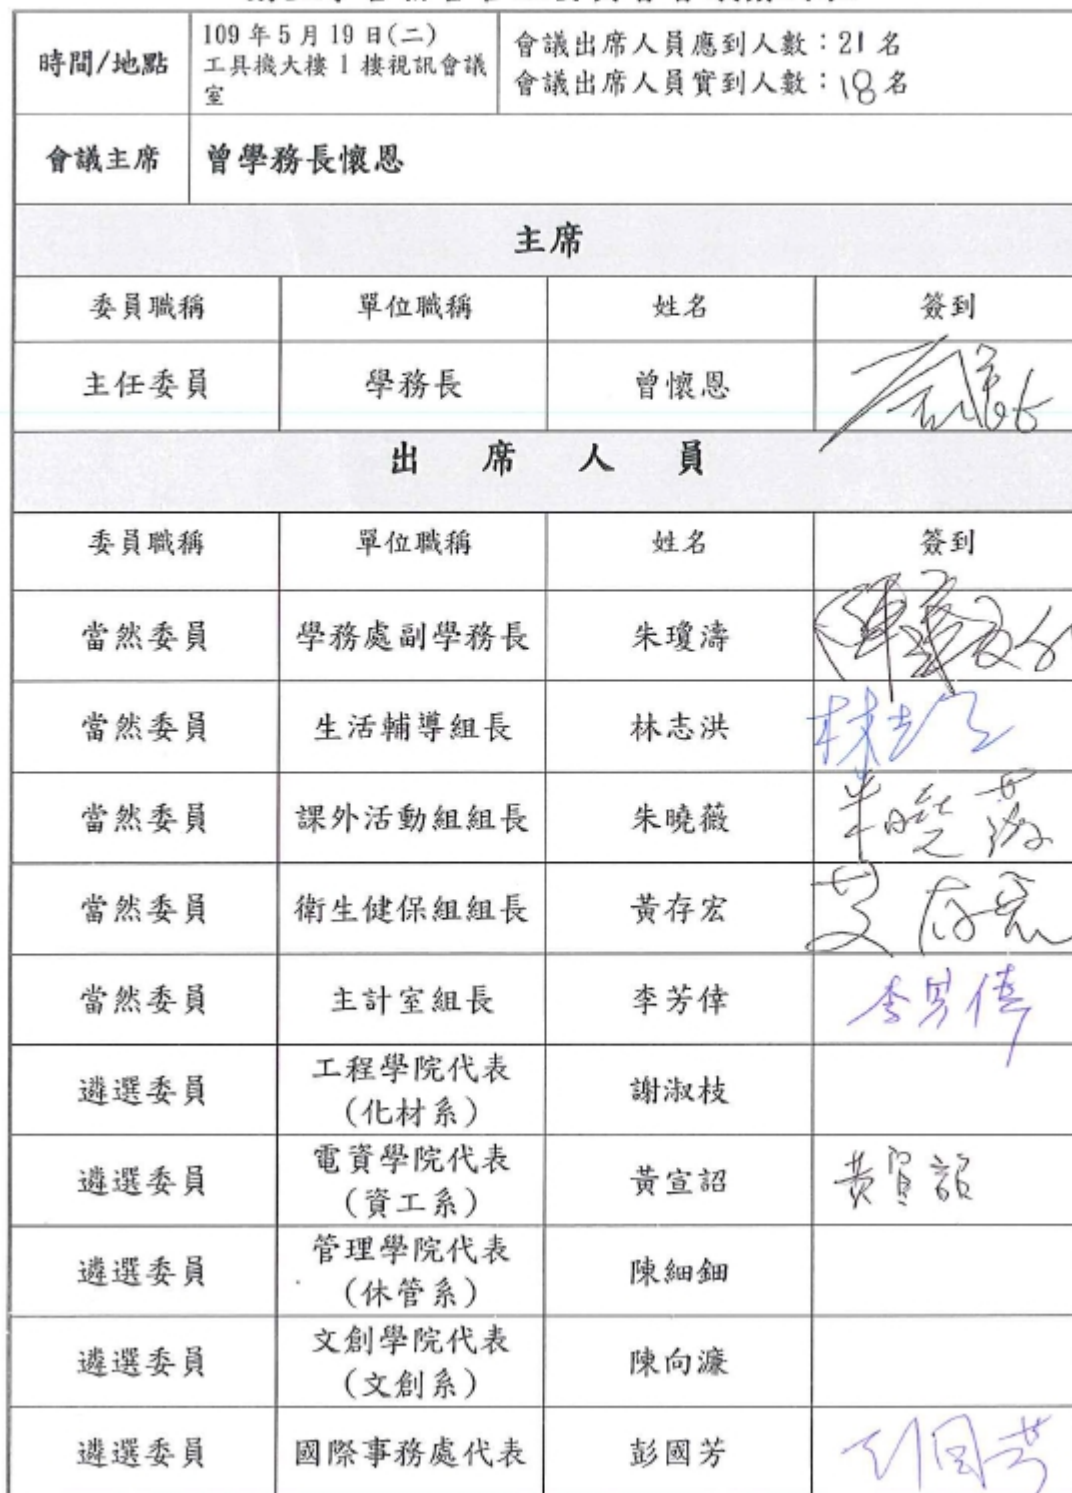 時間/地點
109 年 5 月 19 日(二)
工具機大樓 1 樓視訊會議
室
會議出席人員應到人數：21 名
會議出席人員實到人數：18 名
會議主席
曾學務長懷恩
主席
委員職稱 單位職稱 姓名 簽到
主任委員 學務長 曾懷恩
出 席 人 員
委員職稱 單位職稱 姓名 簽到
當然委員 學務處副學務長 朱瓊濤
當然委員 生活輔導組長 林志洪 林志洪
當然委員 課外活動組組長 朱曉薇 朱曉薇
當然委員 衛生健保組組長 黃存宏 黃存宏
當然委員 主計室組長 李芳偉 李芳偉
遴選委員 工程學院代表
(化材系) 謝淑枝
遴選委員 電資學院代表
(資工系) 黃宣詔 黃宣詔
遴選委員 管理學院代表
(休管系) 陳細鈿
遴選委員 文創學院代表
(文創系) 陳向濂
遴選委員 國際事務處代表 彭國芳